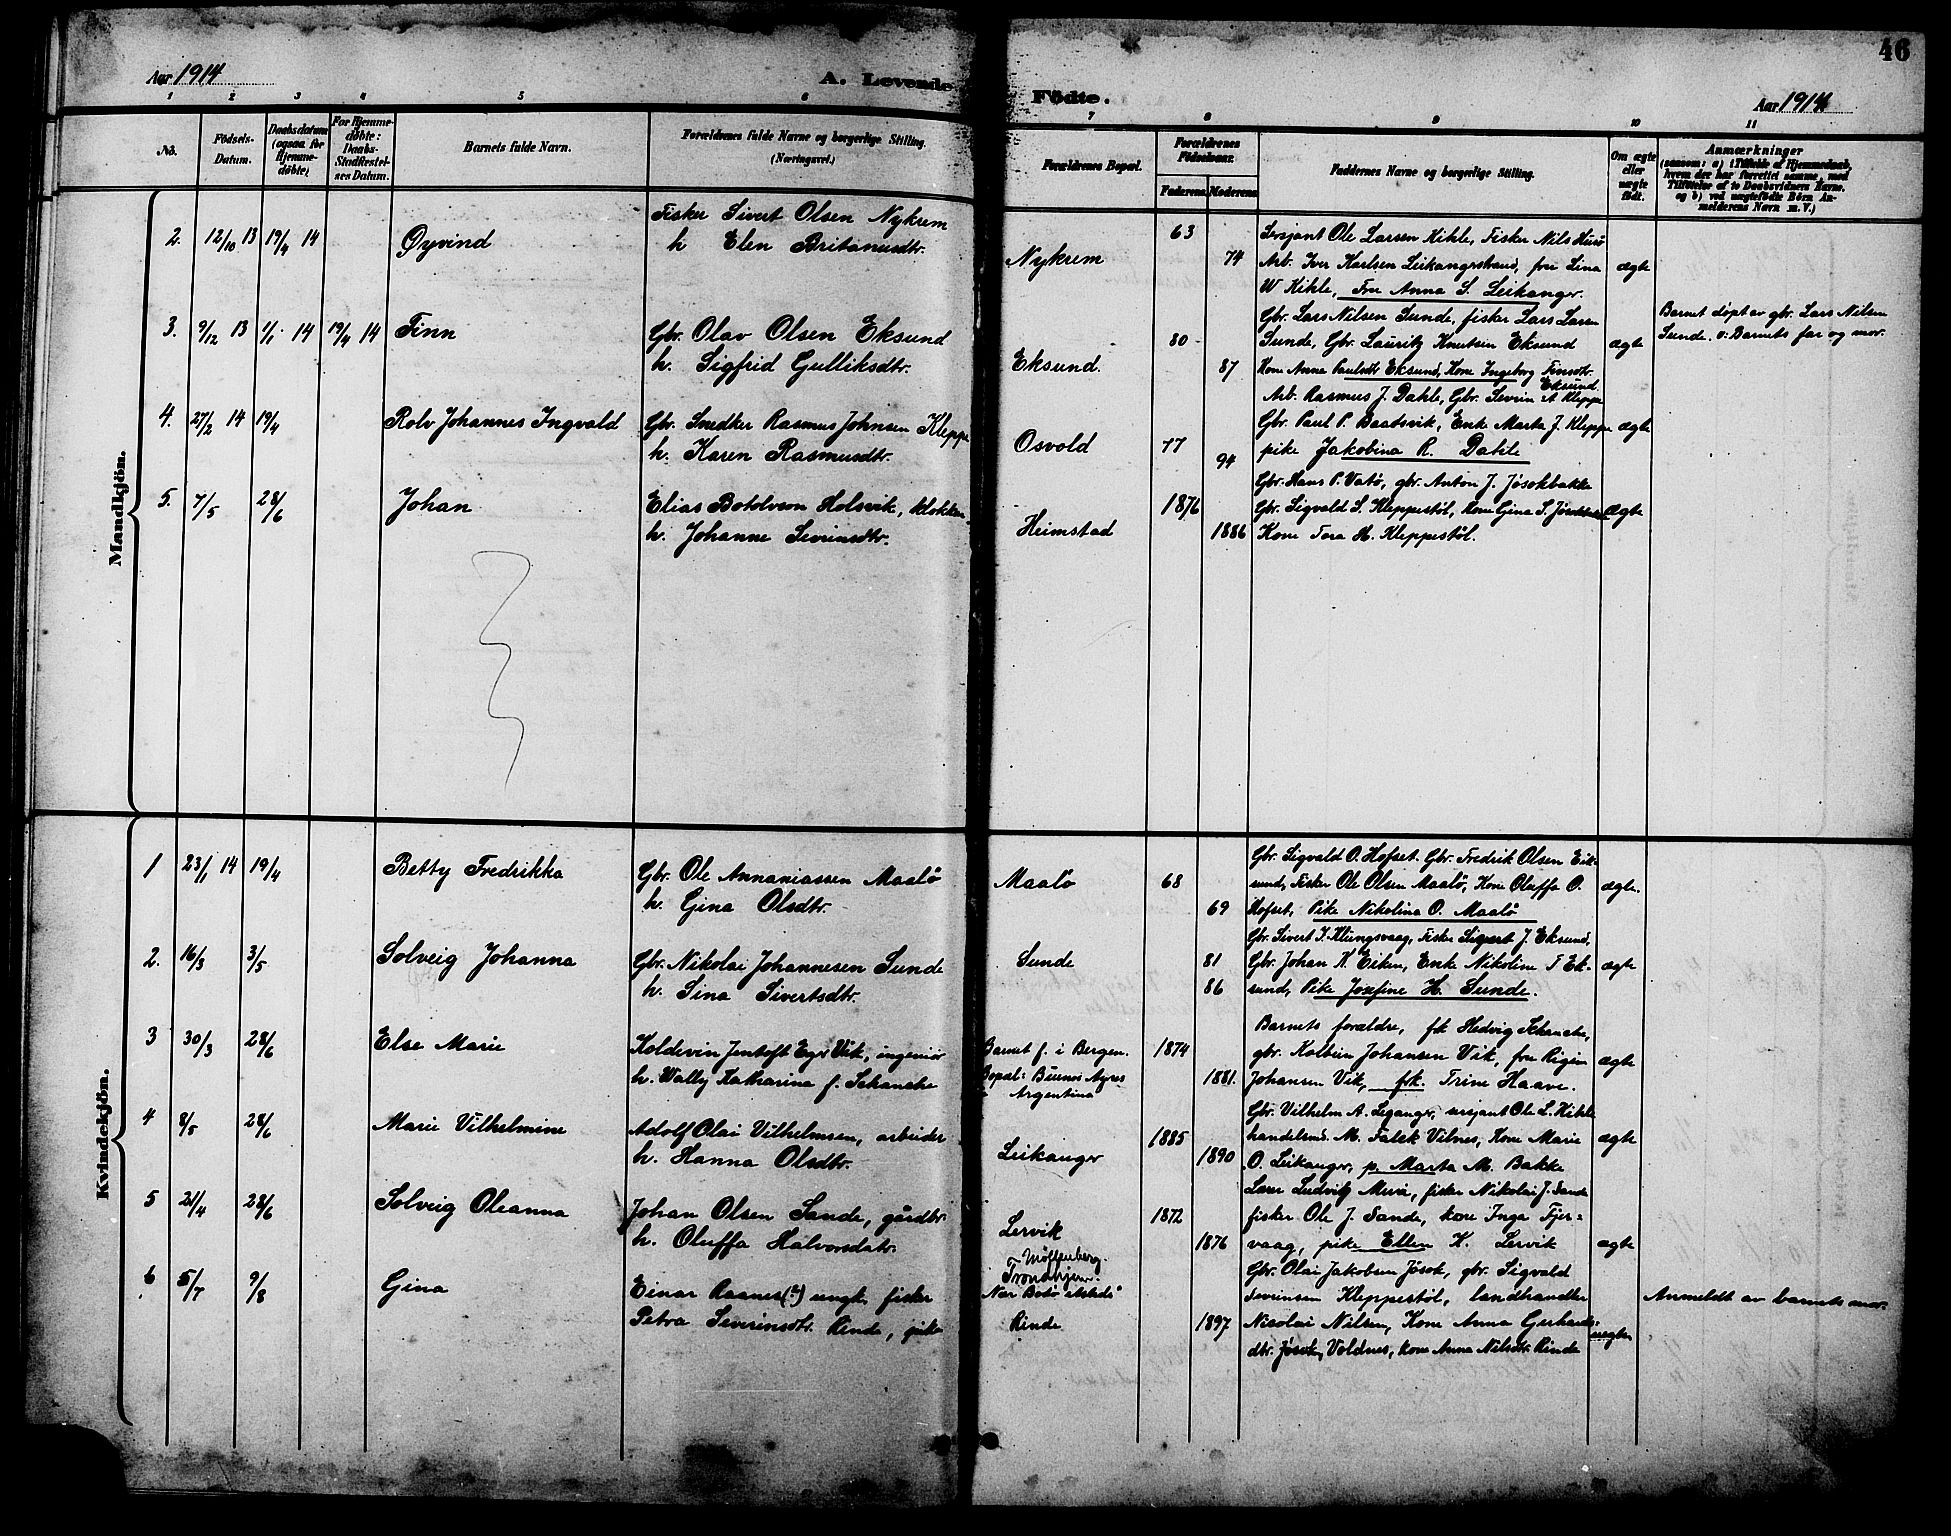 46
Aar 1914
A. Levende Födte.
Aar 1914
1 2 3 4 5 6 7 8 9 10 11
No.
Födsels-Datum.
Daabsdatum (ogsaa for Hjemmedöbte)
For Hjemmedöbte: Daabs-Stadfestelses Datum.
Barnets fulde Navn.
Forældrenes fulde Navne og borgerlige Stilling. (Næringsvei.)
Forældrenes Bopæl.
Forældrenes Födselsaar.
Faderens Moderens
Faddernes Navne og borgerlige Stilling.
Om ægte eller uægte födt.
Anmærkninger
(saasom: a) i Tilfælde af Hjemmedaab, hvem der har forrettet samme, med Tilföielse af to Daabsvidners Navne, og b) ved uægtefödte Börn Anmelderens Navn m. V.)
Mandkjön.
2. 12/10 13 19/4 14 Øyvind
Fisker Sivert Olsen Nykrem
h Elen Britanusdtr.
Nykrem 63 74
Sersjant Ole Larsen Kihle, Fisker Nils Husø
Arb. Iver Karlsen Leikangerstrand, fru Lina
W Kihle, Fru Anna S. Leikanger.
ægte
3. 9/12 13 1/1 14 19/4 14 Finn
Gbr. Olav Olsen Eksund
h. Sigfrid Gulliksdtr.
Eksund. 80 87
Gbr. Lars Nilsen Sunde, fisker Lars Larsen
Sunde, Gbr. Lauritz Knutsen Eksund
Kone Anna Paulsdt Eksund, Kone Ingeborg Finsdtr.
Eksund
ægte
Barnet døpt av gbr. Lars Nilsen
Sunde. v: Barnets far og mor.
4. 27/2 14 19/4 Rolv Johannes Ingvald
Gbr. Snedker Rasmus Johnsen Kleppe
h. Karen Rasmusdtr.
Osvold 77 94
Arb. Rasmus J. Dahle, Gbr. Severin A Kleppe
Gbr. Paul P. Baadsvik, Enke Marta J. Kleppe
pike Jakobina R. Dahle
ægte
5. 7/5 28/6 Johan
Elias Botolvson Holsvik, klokker
h. Johanne Sivrinsdtr.
Heimstad 1876 1886
Gbr. Hans P. Vatø, gbr. Anton J. Jøsokbakke
Gbr. Sigvald S. Kleppestøl, Kone Gina S. Jøsokbakke
Kone Tora H. Kleppestøl.
ægte
Kvindekjön.
1 23/1 14 19/4 Betty Fredrikka
Gbr. Ole Annaniassen Maalø
h. Gina Olsdtr.
Maalø 68 69
Gbr. Sigvald O. Hofset. Gbr. Fredrik Olsen Eik-
sund, Fisker Ole Olsen Maalø, Kone Oluffa O.
Hofset, Pike Nikolina O. Maalø
ægte.
2. 16/3 3/5 Solveig Johanna
Gbr. Nikolai Johannesen Sunde
h. Sina Sivertsdtr.
Sunde 81 86
Gbr. Sivert K. Klungsvaag, Fisker Sigurt J. Eksund,
Gbr. Johan K. Eiken, Enke Nikoline T Ek-
sund, Pike Josefine H. Sunde.
ægte
3 30/3 28/6 Else Marie
Koldevin Jentoft Eger Vik, ingeniør
h. Wally Katharina f. Schanche
Barnet f. i Bergen.
Bopæl: Buenos Ayres
Argentina
1874 1881.
Barnets forældre, frk Hedvig Schanche,
gbr. Kolbein Johansen Vik, fru Rigine
Johansen Vik, frk. Trine Haave.
ægte
4 8/5 28/6 Marie Vilhelmine
Adolf Olai Vilhelmsen, arbeider
h. Hanna Olsdtr.
Leikanger 1885 1890
Gbr. Vilhelm A. Leganger, sersjant Ole L. Kihle
handelsm. M. Falck Vilnes, Kone Marie
O. Leikanger, p. Marta M. Bakke
ægte
5 21/4 28/6 Solveig Oleanna
Johan Olsen Sande, gårdbr.
h. Oluffa Halvorsdatr.
Lervik 1872 1876
Lærer Ludvig Muri, fisker Nikolai J. Sande
fisker Ole J. Sande, kone Inga Tjer-
vaag, pike Ellen K. Lervik
ægte
6 5/7 9/8 Gina
Einar Raanes (?) ungk. fisker
Petra Severinsdtr. Rinde, pike
Møllenberg.
Trondhjem.
Rinde 1897
Gbr. Olai Jakobsen Jøsok, gbr. Sigvald
Severinsen Kleppestøl, landhandler
Nicolai Nilsen, Kone Anna Gerhards-
dtr. Jøsok, Voldnes, kone Anna Nilsdtr. Rinde
uegte
Anmeldt av barnets mor.